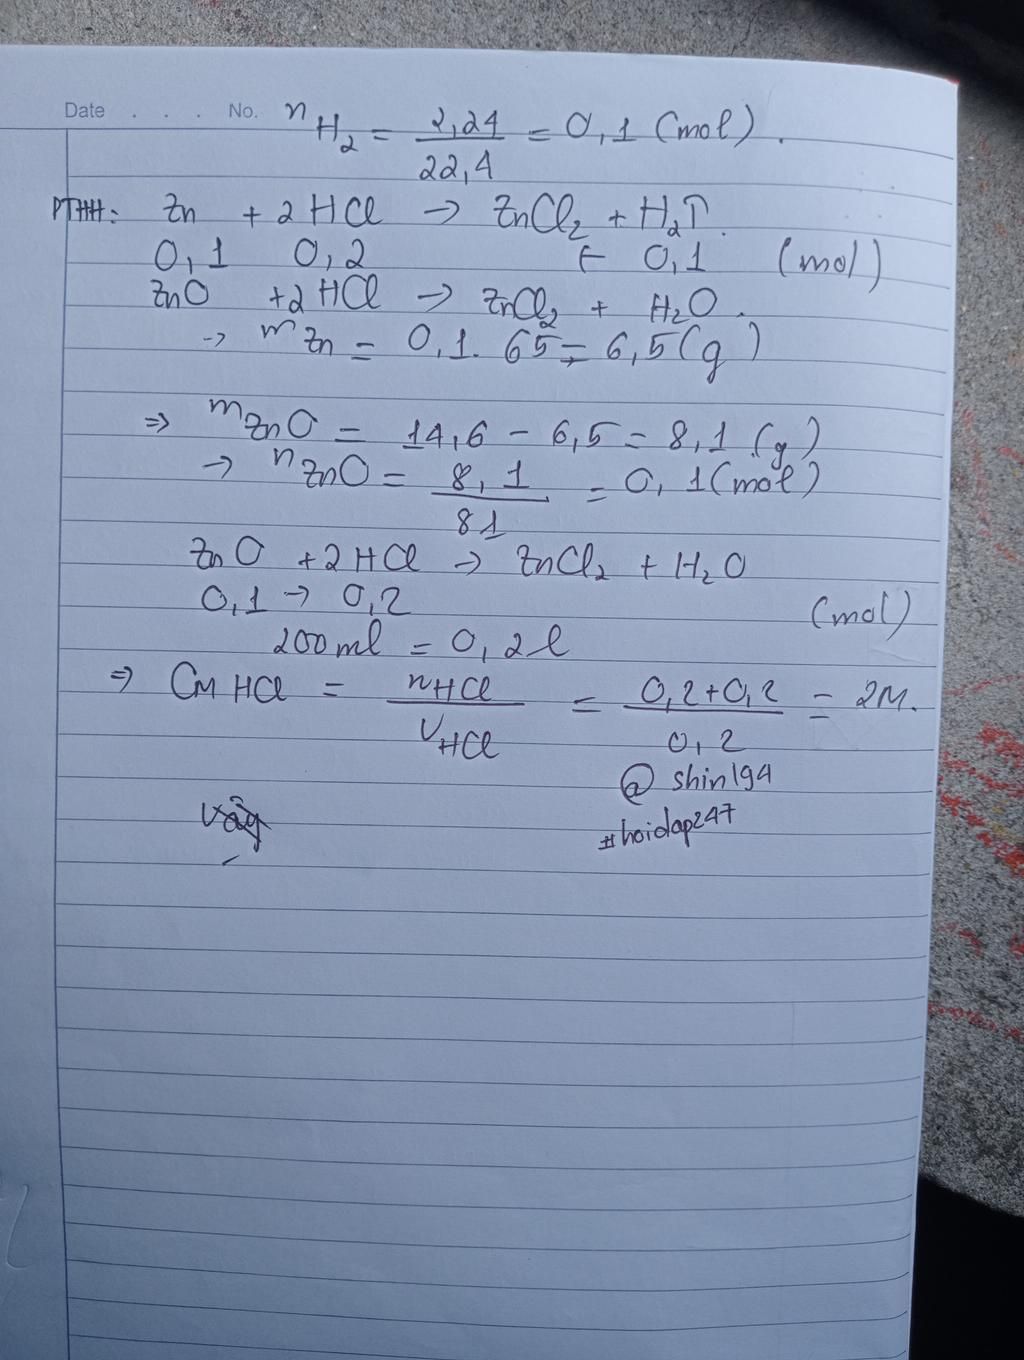 Date . . . . No. nH₂ = 2,24/22,4 = 0,1 (mol).
PTHH: Zn + 2HCl → ZnCl₂ + H₂↑.
0,1 0,2 ← 0,1 (mol)
ZnO +2HCl → ZnCl₂ + H₂O.
→ mZn = 0,1. 65 = 6,5(g)
⇒ mZnO = 14,6 - 6,5 = 8,1 (g)
→ nZnO = 8,1/81 = 0,1(mol)
ZnO +2HCl → ZnCl₂ + H₂O
0,1 → 0,2 (mol)
200ml = 0,2l
⇒ CM HCl = nHCl/VHCl = 0,2+0,2/0,2 = 2M.
@ shin194
Vậy #hoidap247